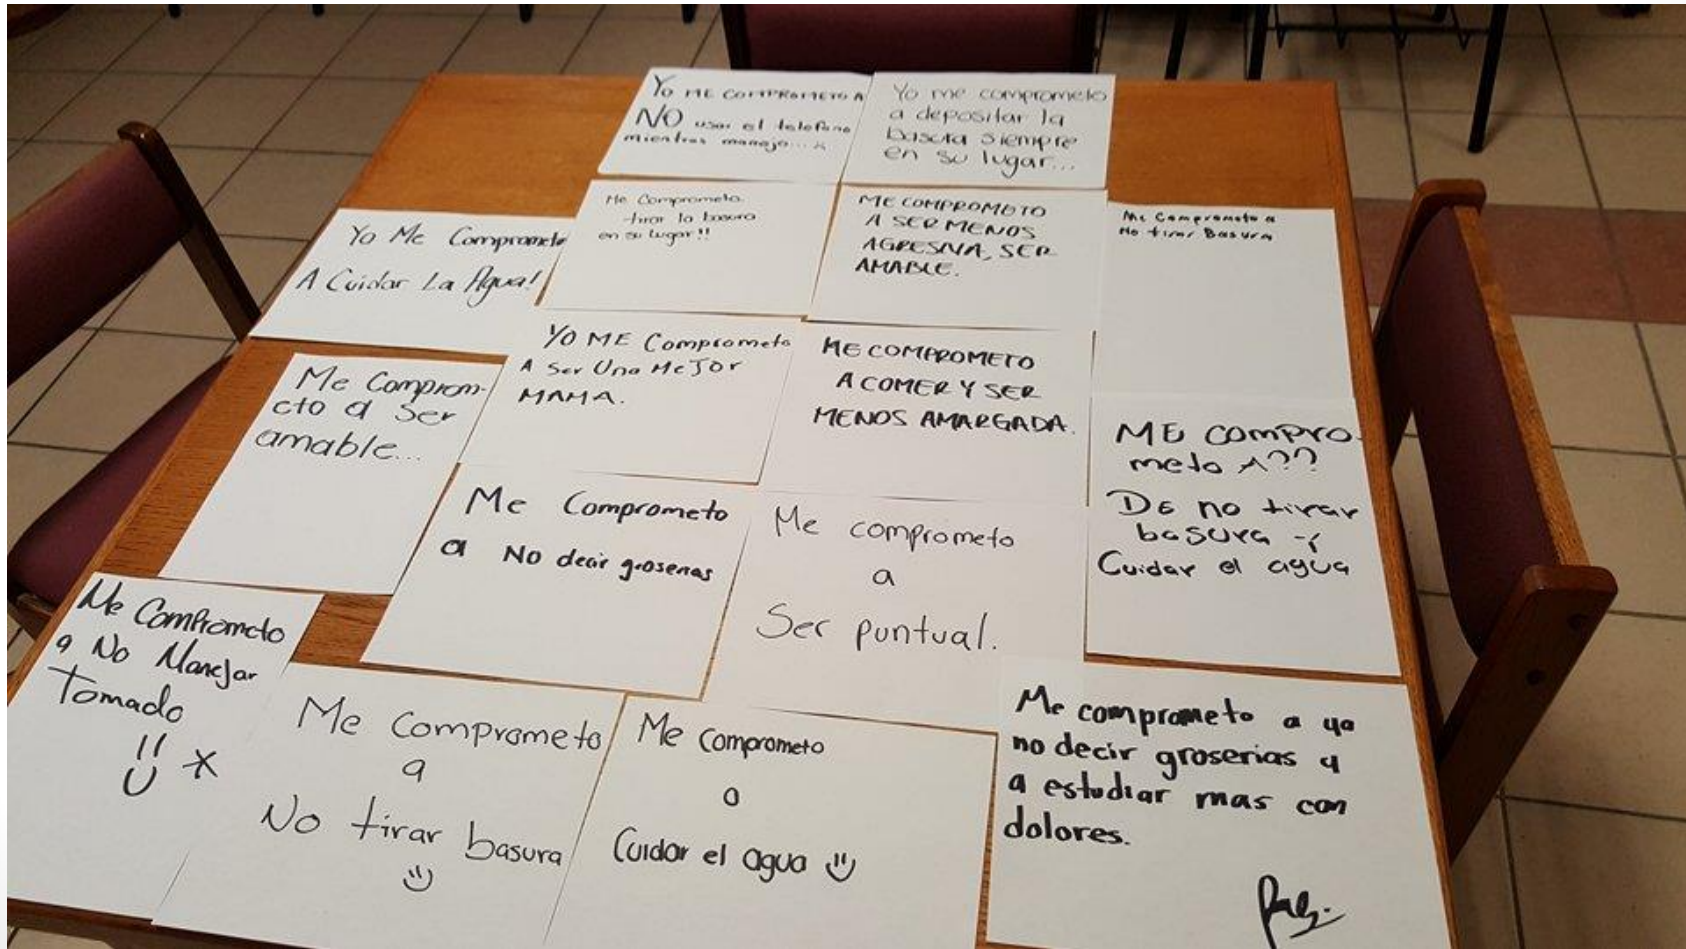 Yo ME COMPROMETO A
NO usar el telefono
mientras manejo...
Yo me comprometo
a depositar la
basura siempre
en su lugar...
Yo Me Comprometo
A Cuidar La Agua!
Me Comprometo.
tirar la basura
en su lugar!!
ME COMPROMETO
A SER MENOS
AGRESIVA, SER
AMABLE.
Me Comprometo a
No tirar Basura
Me Comprom-
eto a ser
amable...
YO ME Comprometo
A Ser Una MeJor
MAMA.
ME COMPROMETO
A COMER Y SER
MENOS AMARGADA.
ME COMPRO-
meto A??
DE no tirar
basura y
Cuidar el agua
Me Comprometo
a No decir groserias
Me comprometo
a
Ser puntual.
Me Comprometo
a No ManeJar
Tomado
Me Comprometo
a
No tirar basura
Me Comprometo
a
Cuidar el agua
Me comprometo a ya
no decir groserias y
a estudiar mas con
dolores.